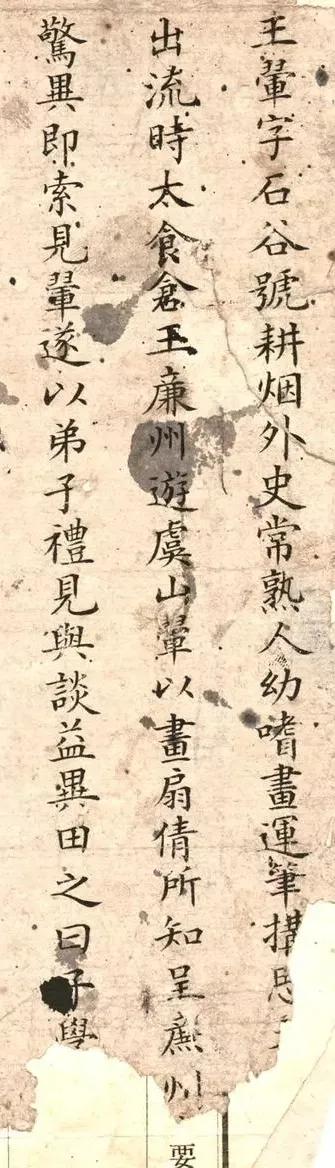 王翬字石谷號耕烟外史常熟人幼嗜畫運筆搆思
出流時太食倉王廉州遊虞山翬以畫扇倩所知呈廉州
驚異即索見翬遂以弟子禮見與談益異田之曰子學
要